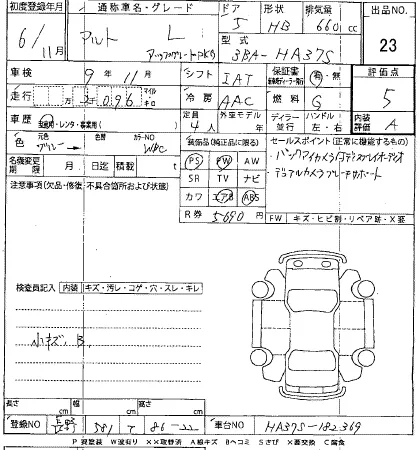 初度登録年月 通称車名・グレード ドア 形状 排気量 出品NO.
6/11月 アルト L 5 HB 660cc 23
アップグレードPKG 型式
3BA-HA37S
車検 9年 11月 シフト IAT 保証書 有・無 評価点
走行 096 マイル・キロ 冷房 AAC 燃料 G 5
車歴 自家用・レンタ・事業用( ) 定員 4人 外装モデル ディーラー 並行 ハンドル 左・右 内装評価 A
色 元色 色替 カラーNO 装備品(純正品に限る) セールスポイント(正常に機能するもの)
グレー PS PW AW
名義変更期限 月 日迄 積載 t SR TV ナビ デュアルカメラブレーキサポート
注意事項(欠品・修復・不具合箇所および状態) カワ エアB ABS
R券 5690円 FW キズ・ヒビ割・リペア跡・X要
検査員記入 内装 キズ・汚レ・コゲ・穴・スレ・キレ
小キズ B
長さ cm 幅 cm 高さ cm
登録NO 581 86-22 車台NO HA37S-182369
P 要塗装 W波有り ××取替済 A線キズ Bヘコミ Sさび X要交換 C腐食